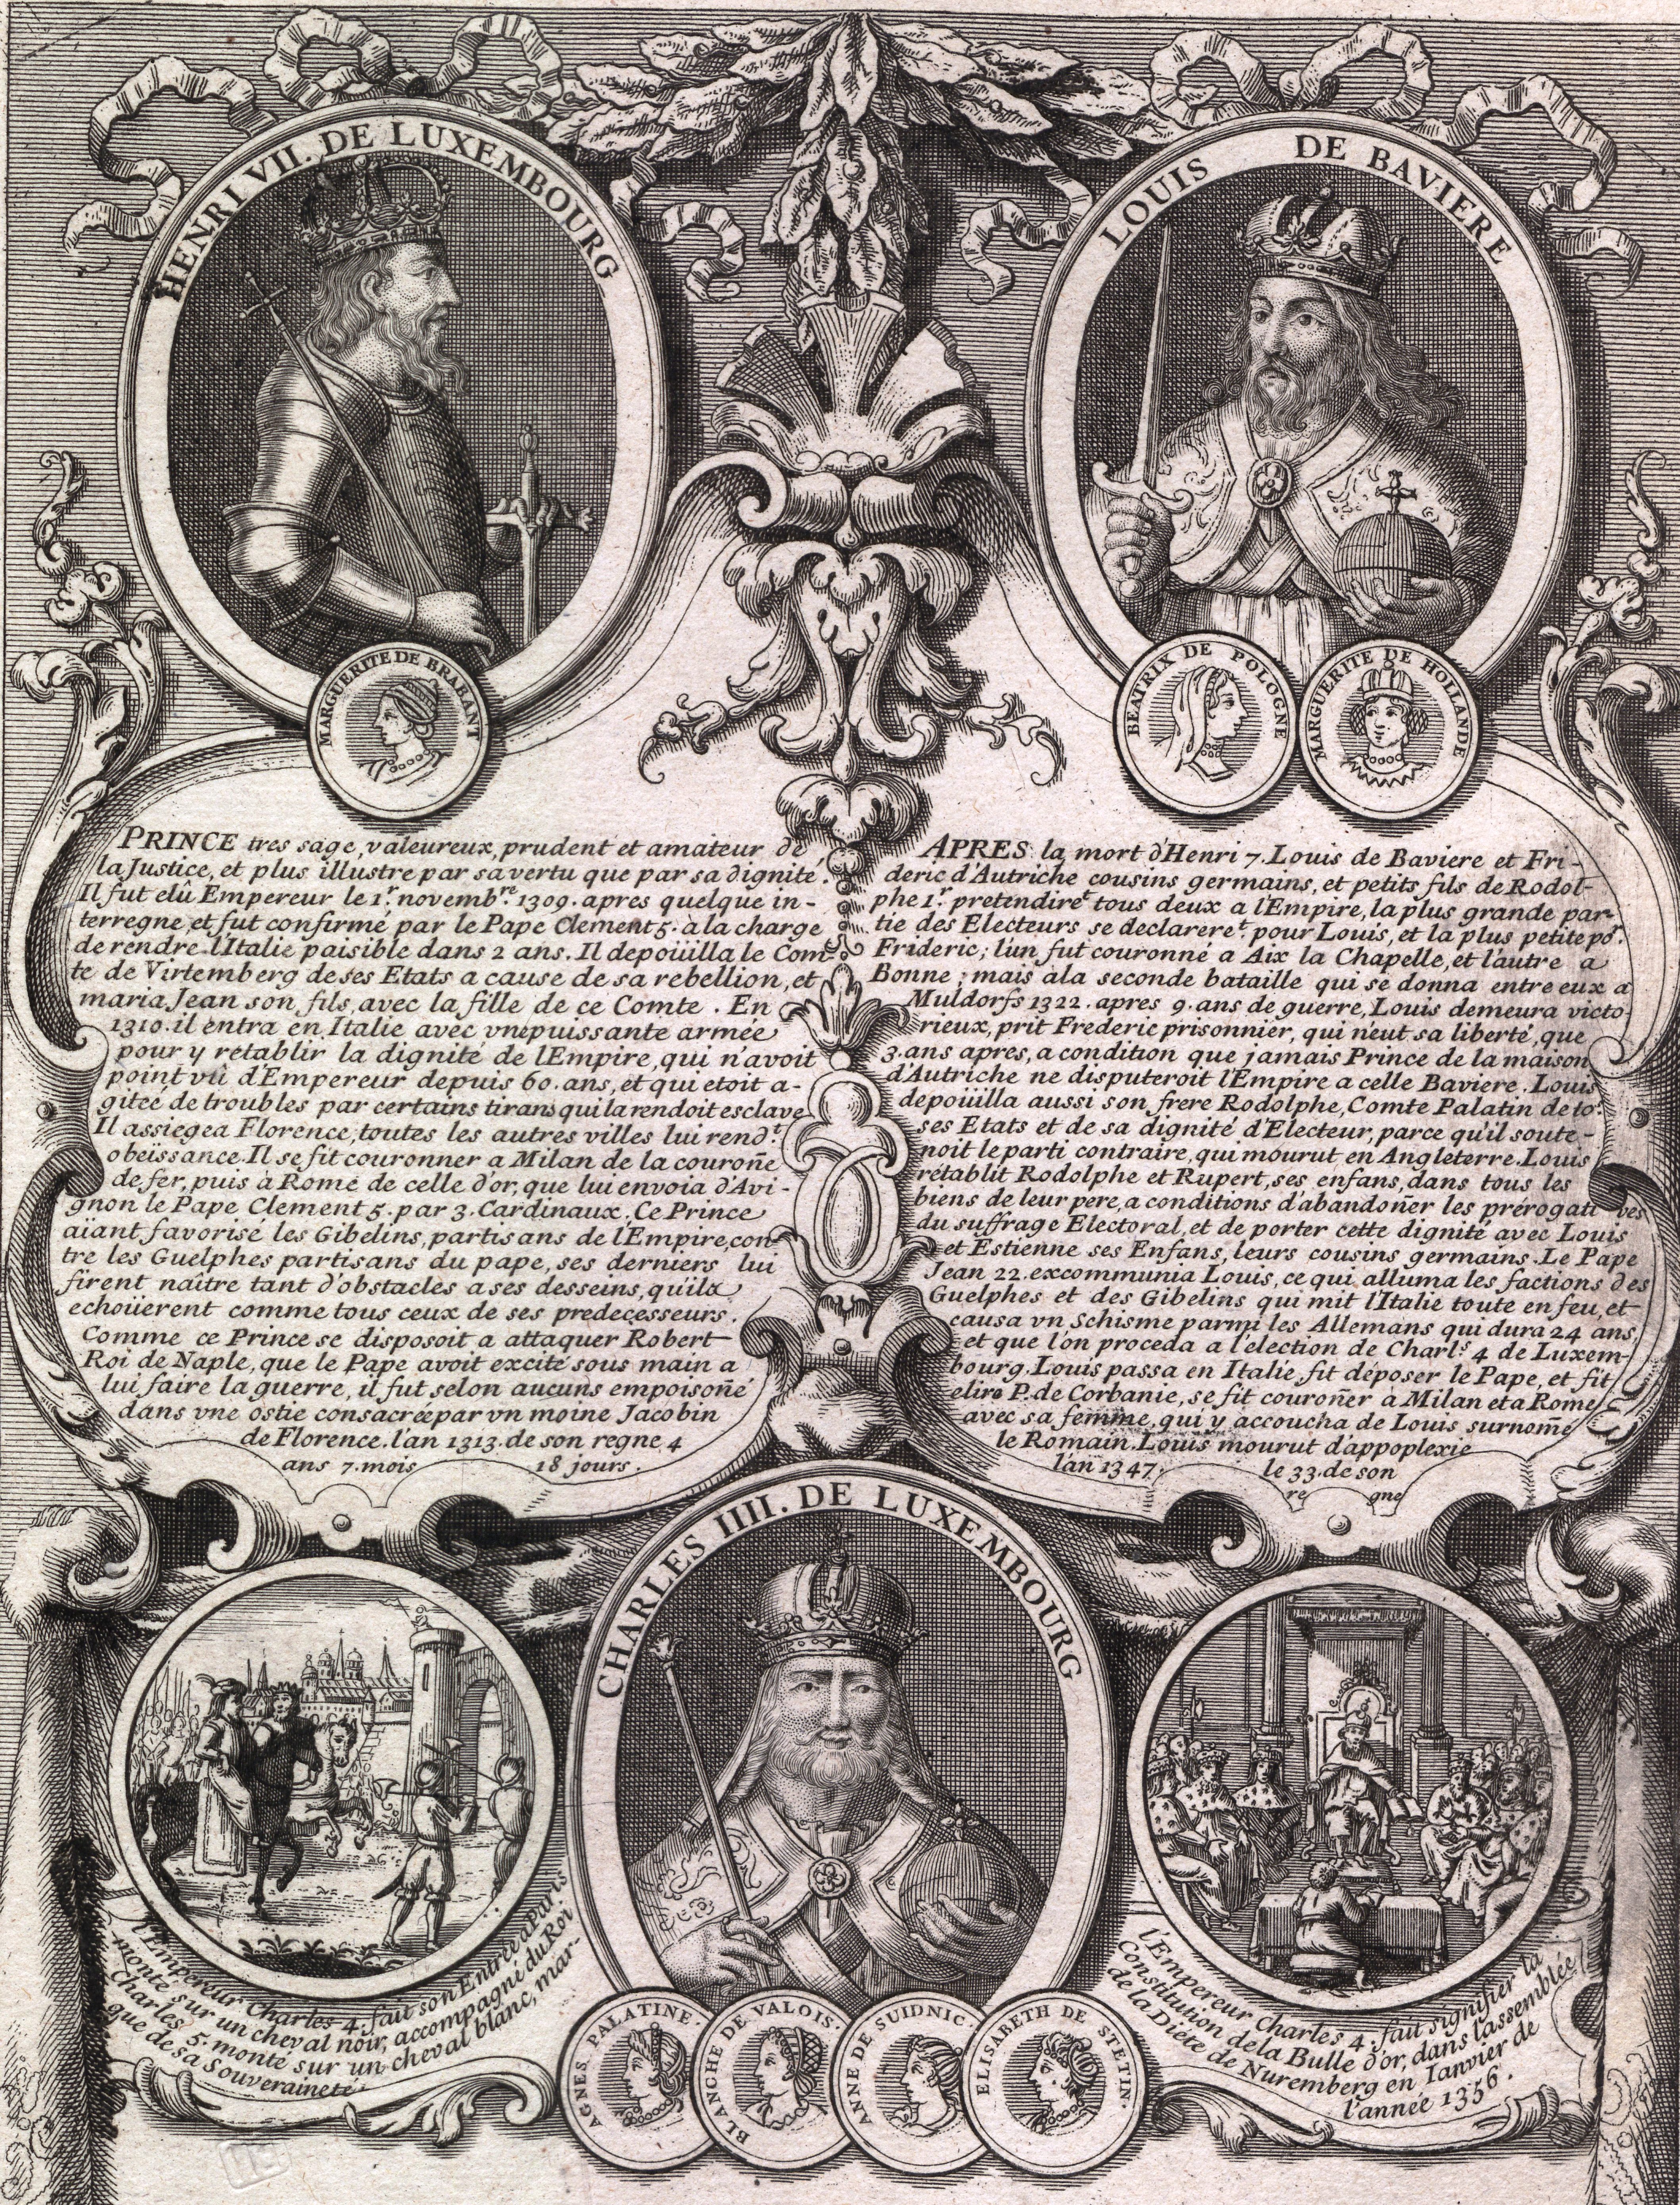 HENRI VII. DE LUXEMBOURG
MARGUERITE DE BRABANT
LOUIS DE BAVIERE
BEATRIX DE POLOGNE
MARGUERITE DE HOLLANDE
PRINCE tres sage, valeureux, prudent et amateur de
la Justice, et plus illustre par sa vertu que par sa dignité.
Il fut elû Empereur le 1r. novembre. 1309. apres quelque in-
terregne, et fut confirmé par le Pape Clement 5. a la charge
de rendre l'Italie paisible dans 2 ans. Il depoüilla le Com-
te de Virtemberg de ses Etats a cause de sa rebellion, et
maria Jean son fils, avec la fille de ce Comte. En
1310. il entra en Italie avec vne puissante armée
pour y rétablir la dignité de l'Empire, qui n'avoit
point vû d'Empereur depuis 60. ans, et qui etoit a-
gitée de troubles par certains tirans qui la rendoit esclave
Il assiegea Florence, toutes les autres villes lui rendt.
obeïssance. Il se fit couronner a Milan de la couroñe
de fer, puis a Rome de celle d'or, que lui envoia d'Avi-
gnon le Pape Clement 5. par 3. Cardinaux. Ce Prince
aïant favorisé les Gibelins, partisans de l'Empire, con-
tre les Guelphes partisans du pape, ses derniers lui
firent naître tant d'obstacles a ses desseins, qu'ils
echoüerent comme tous ceux de ses predecesseurs.
Comme ce Prince se disposoit a attaquer Robert
Roi de Naple, que le Pape avoit excité sous main a
lui faire la guerre, il fut selon aucuns empoisoñé
dans vne ostie consacrée par vn moine Jacobin
de Florence. l'an 1313. de son regne 4
ans 7. mois 18 jours.
APRES la mort d'Henri 7. Louis de Baviere et Fri-
deric d'Autriche cousins germains, et petits fils de Rodol-
phe 1r. pretendiret tous deux a l'Empire, la plus grande par-
tie des Electeurs se declareret. pour Louis, et la plus petite por.
Frideric; l'un fut couronné a Aix la Chapelle, et l'autre a
Bonne; mais a la seconde bataille qui se donna entre eux a
Muldorfs 1322. apres 9. ans de guerre, Louis demeura victo-
rieux, prit Frederic prisonnier, qui n'eut sa liberté, que
3. ans apres, a condition que jamais Prince de la maison
d'Autriche ne disputeroit l'Empire a celle Baviere. Louis
depoüilla aussi son frere Rodolphe, Comte Palatin de to9.
ses Etats et de sa dignité d'Electeur, parce qu'il soute-
noit le parti contraire, qui mourut en Angleterre. Louis
rétablit Rodolphe et Rupert, ses enfans, dans tous les
biens de leur pere, a conditions d'abandoñer les prérogatives
du suffrage Electoral, et de porter cette dignité avec Louis
et Estienne ses Enfans, leurs cousins germains. Le Pape
Jean 22. excommunia Louis, ce qui alluma les factions des
Guelphes et des Gibelins qui mit l'Italie toute en feu, et
causa vn Schisme parmi les Allemans qui dura 24 ans,
et que l'on proceda a l'election de Charls. 4 de Luxem-
bourg. Louis passa en Italie, fit déposer le Pape, et fit
elire P. de Corbanie, se fit couroñer a Milan et a Rome
avec sa femme, qui y accoucha de Louis surnomé
le Romain. Louis mourut d'appoplexie
l'an 1347. le 33. de son
re gne
CHARLES IIII. DE LUXEMBOURG
AGNES PALATINE.
BLANCHE DE VALOIS.
ANNE DE SUIDNIC.
ELISABETH DE STETIN.
l'Empereur Charles 4. fait son Entrée a Paris
monté sur un cheval noir, accompagné du Roi
Charles 5. monté sur un cheval blanc, mar-
que de sa Souveraineté.
l'Empereur Charles 4. fait signifier la
Constitution de la Bulle d'or, dans l'assemblée
de la Diéte de Nuremberg en Ianvier de
l'année 1356.